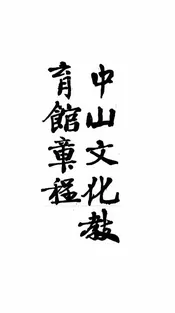 中山文化教
育館章程